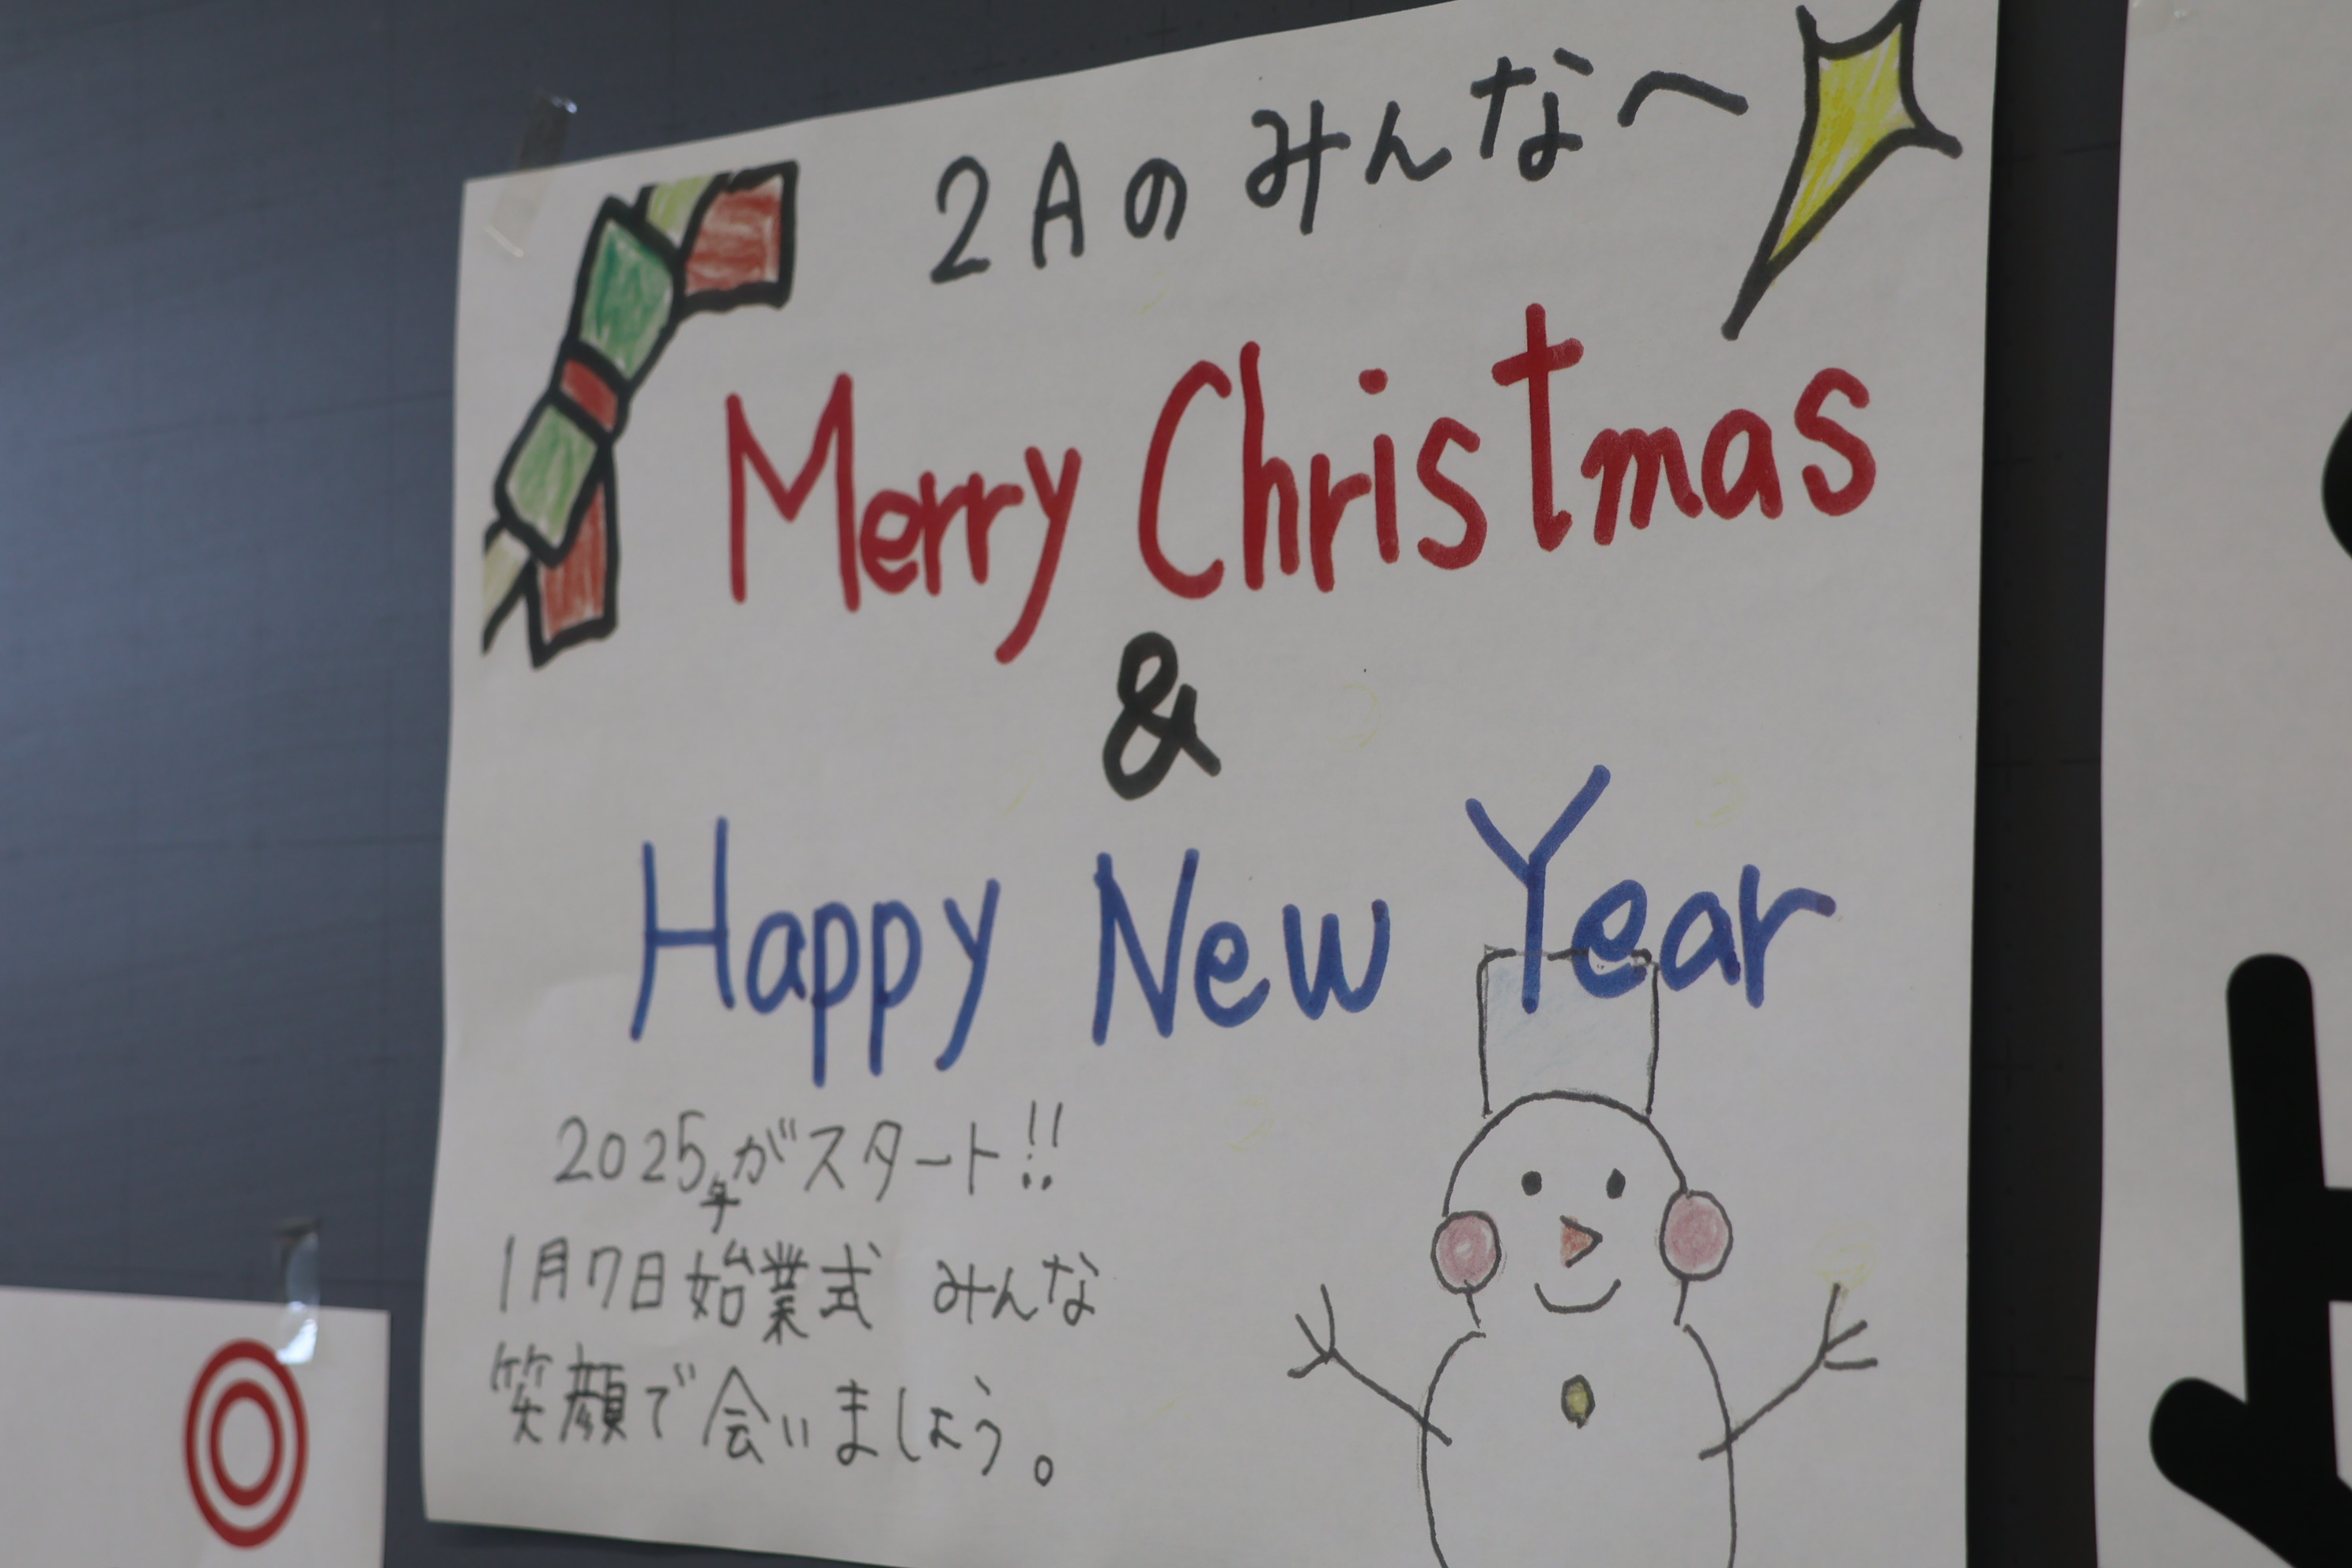 2Aのみんなへ
Merry Christmas
&
Happy New Year
2025年がスタート!!
1月7日始業式 みんな
笑顔で会いましょう。